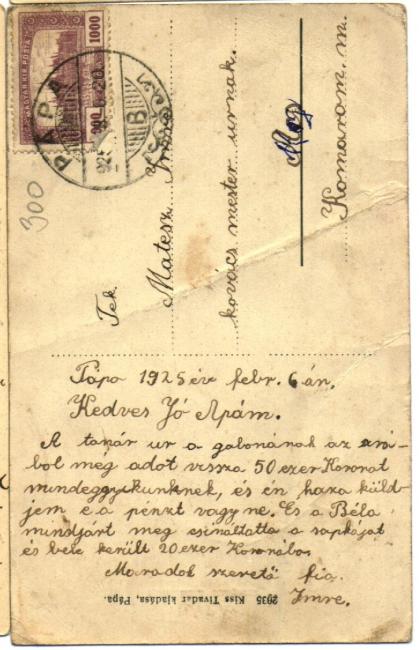 MAGYAR KIR. POSTA
1000
PÁPA
925
300
Tek.
Matesz Imre
kovács mester urnak.
Komárom. m.
Pápa 1925 év febr. 6 án.
Kedves Jó Apám.
A tanár ur a gabonának az árá-
ból még adot vissza 50 ezer Koronát
mindeggyikunknek, és én haza küld-
jem e a pénzt vagy ne. És a Béla
mindjárt meg csináltatta a sapkáját
és bele került 20 ezer Koronába.
Maradok szerető fia.
Imre.
2935 Kiss Tivadar kiadása, Pápa.